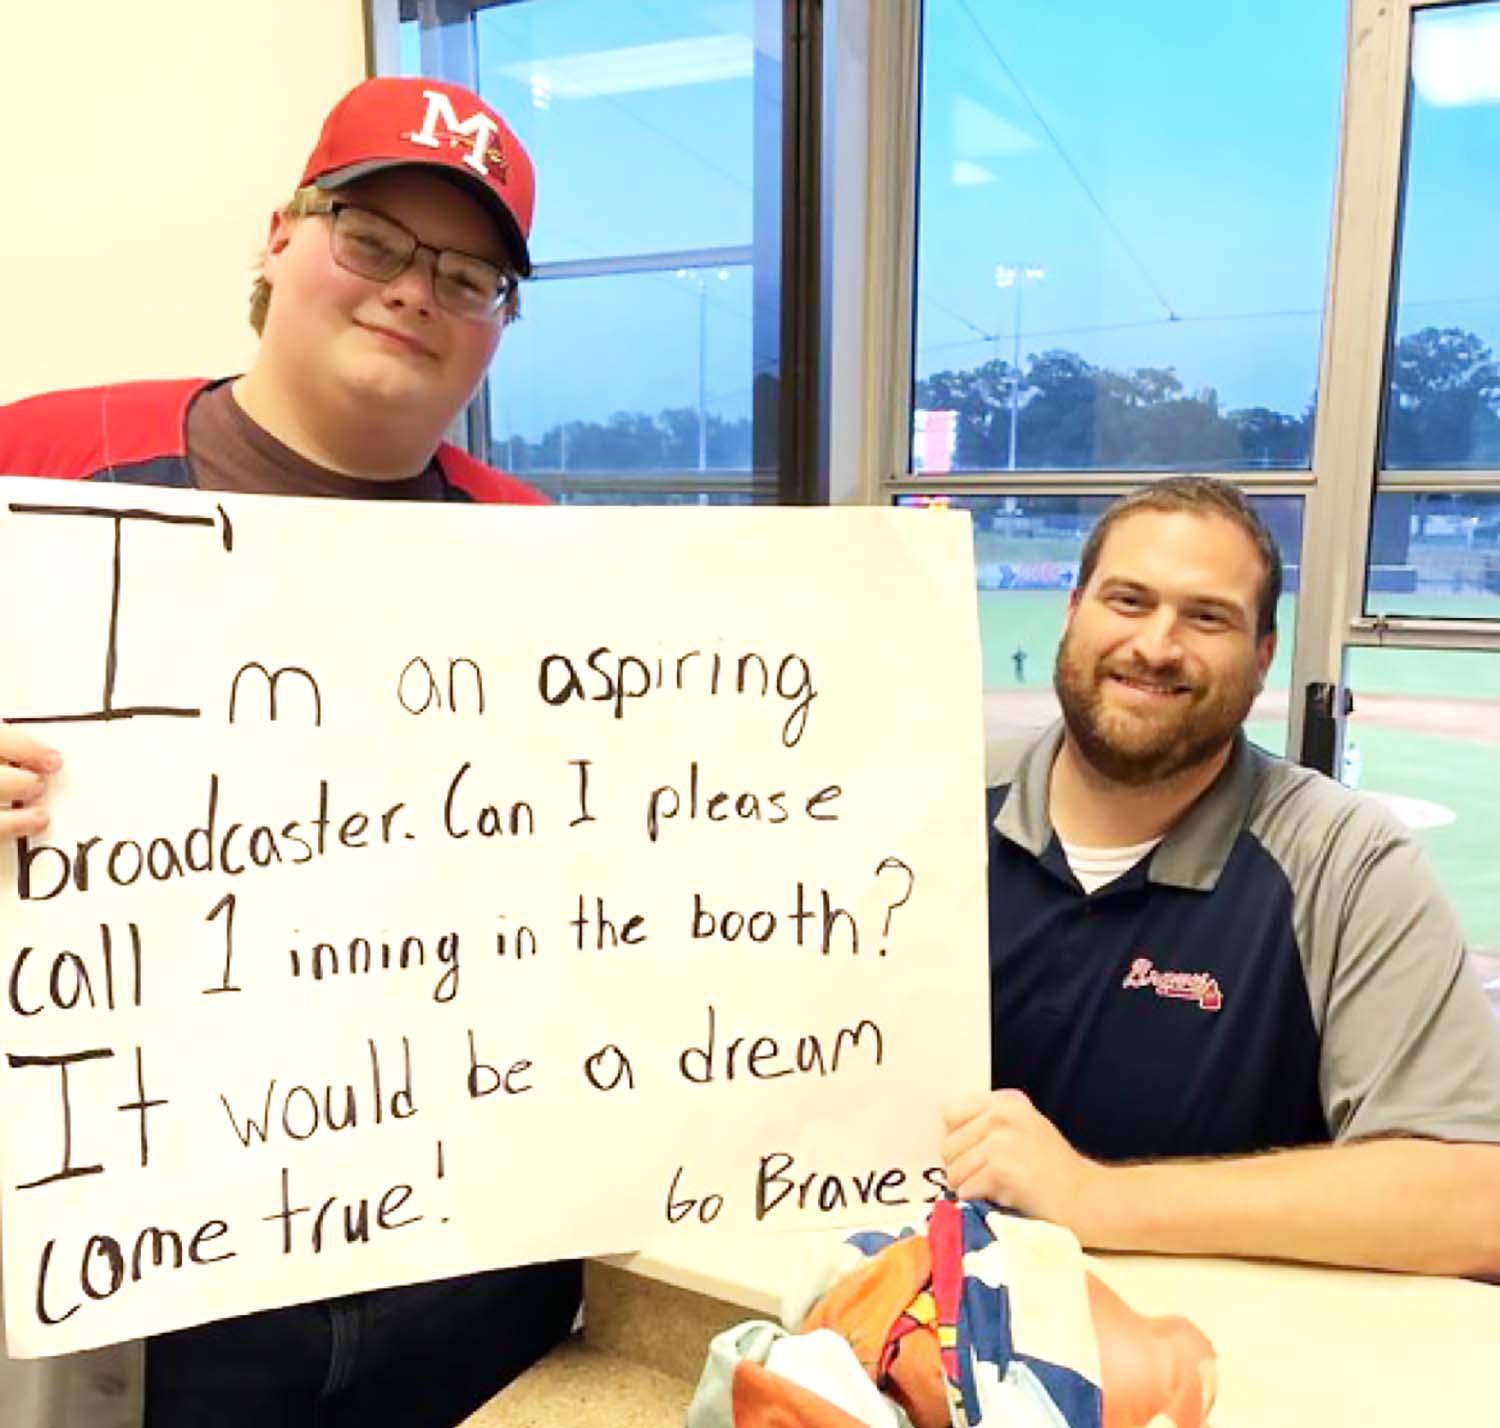 M
I'm an aspiring
broadcaster. Can I please
call 1 inning in the booth?
It would be a dream
come true!
Go Braves
Braves